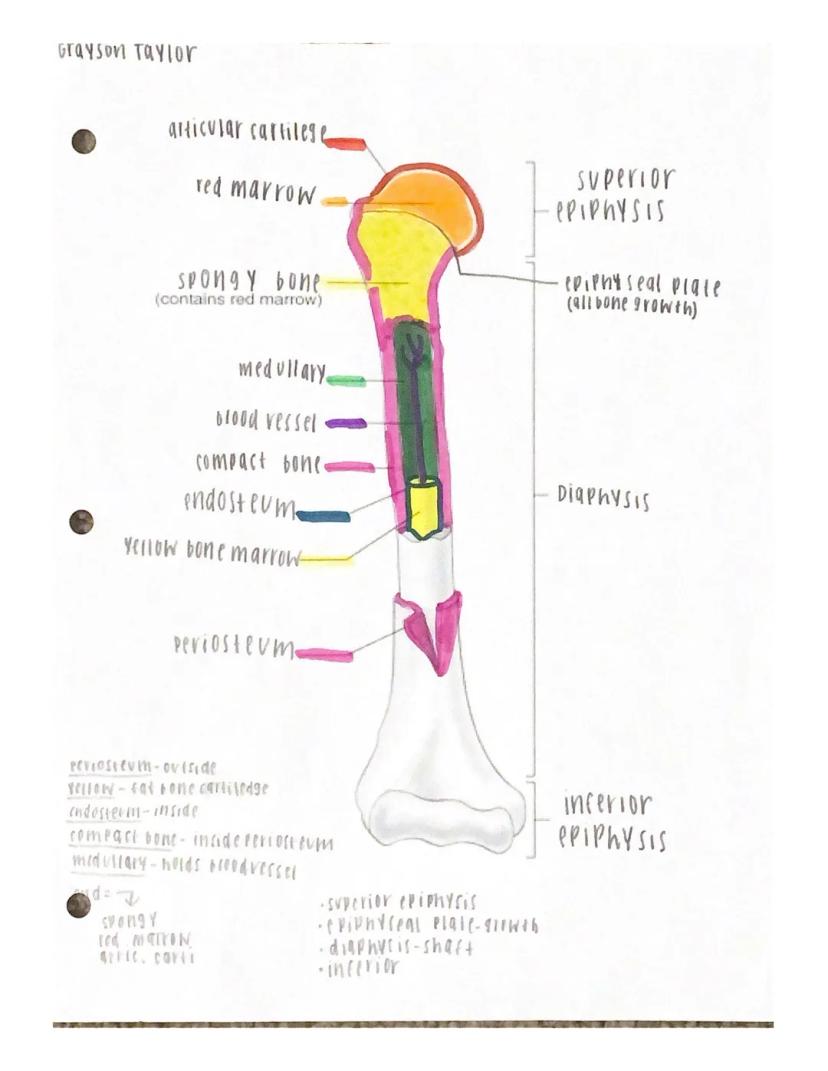 Grayson Taylor
articular cartilege
red marrow
spongy bone
(contains red marrow)
medullary
blood vessel
compact bone
endosteum
yellow bone marrow
periosteum
superior
epiphysis
epiphyseal plate
(all bone growth)
Diaphysis
inferior
epiphysis
periosteum-outside
yellow - fat bone cartiledge
endosteum-inside
compact bone- inside periosteum
medullary-holds bloodvessel
end=
spongy
red marrow
artic. carti
·superior epiphysis
·epiphyseal plate-growth
·diaphysis-shaft
·inferior